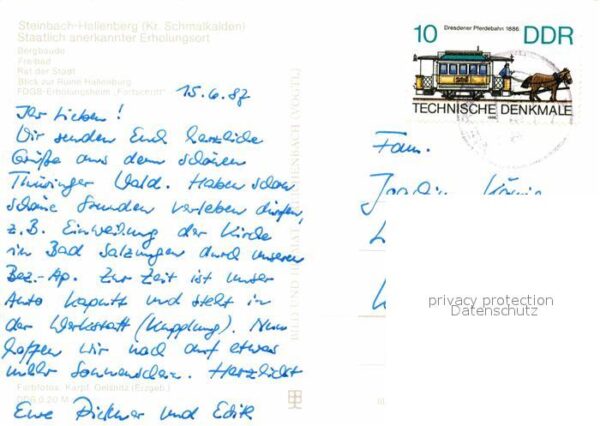 Steinbach-Hallenberg (Kr. Schmalkalden)
Staatlich anerkannter Erholungsort
Bergbaude
Freibad
Rat der Stadt
Blick zur Ruine Hallenburg
FDGB-Erholungsheim „Fortschritt"
15.6.87
Ihr Lieben!
Wir senden Euch herzliche
Grüße aus dem schönen
Thüringer Wald. Haben schon
schöne Stunden verleben dürfen,
z.B. Einweihung der Kirche
in Bad Salzungen durch unseren
Bez.-Ap. Zur Zeit ist unser
Auto kaputt und steht in
der Werkstatt (Kupplung). Nun
hoffen wir noch auf etwas
mehr Sonnenschein. Herzlichst
Eure und Edith
Farbfotos: Karpf, Geisnitz (Erzgeb.)
DDG 0,20 M
BILD UND HEIMAT REICHENBACH (VOGTL)
10 Dresdener Pferdebahn 1886 DDR
TECHNISCHE DENKMALE
1986
Fam.
privacy protection
Datenschutz